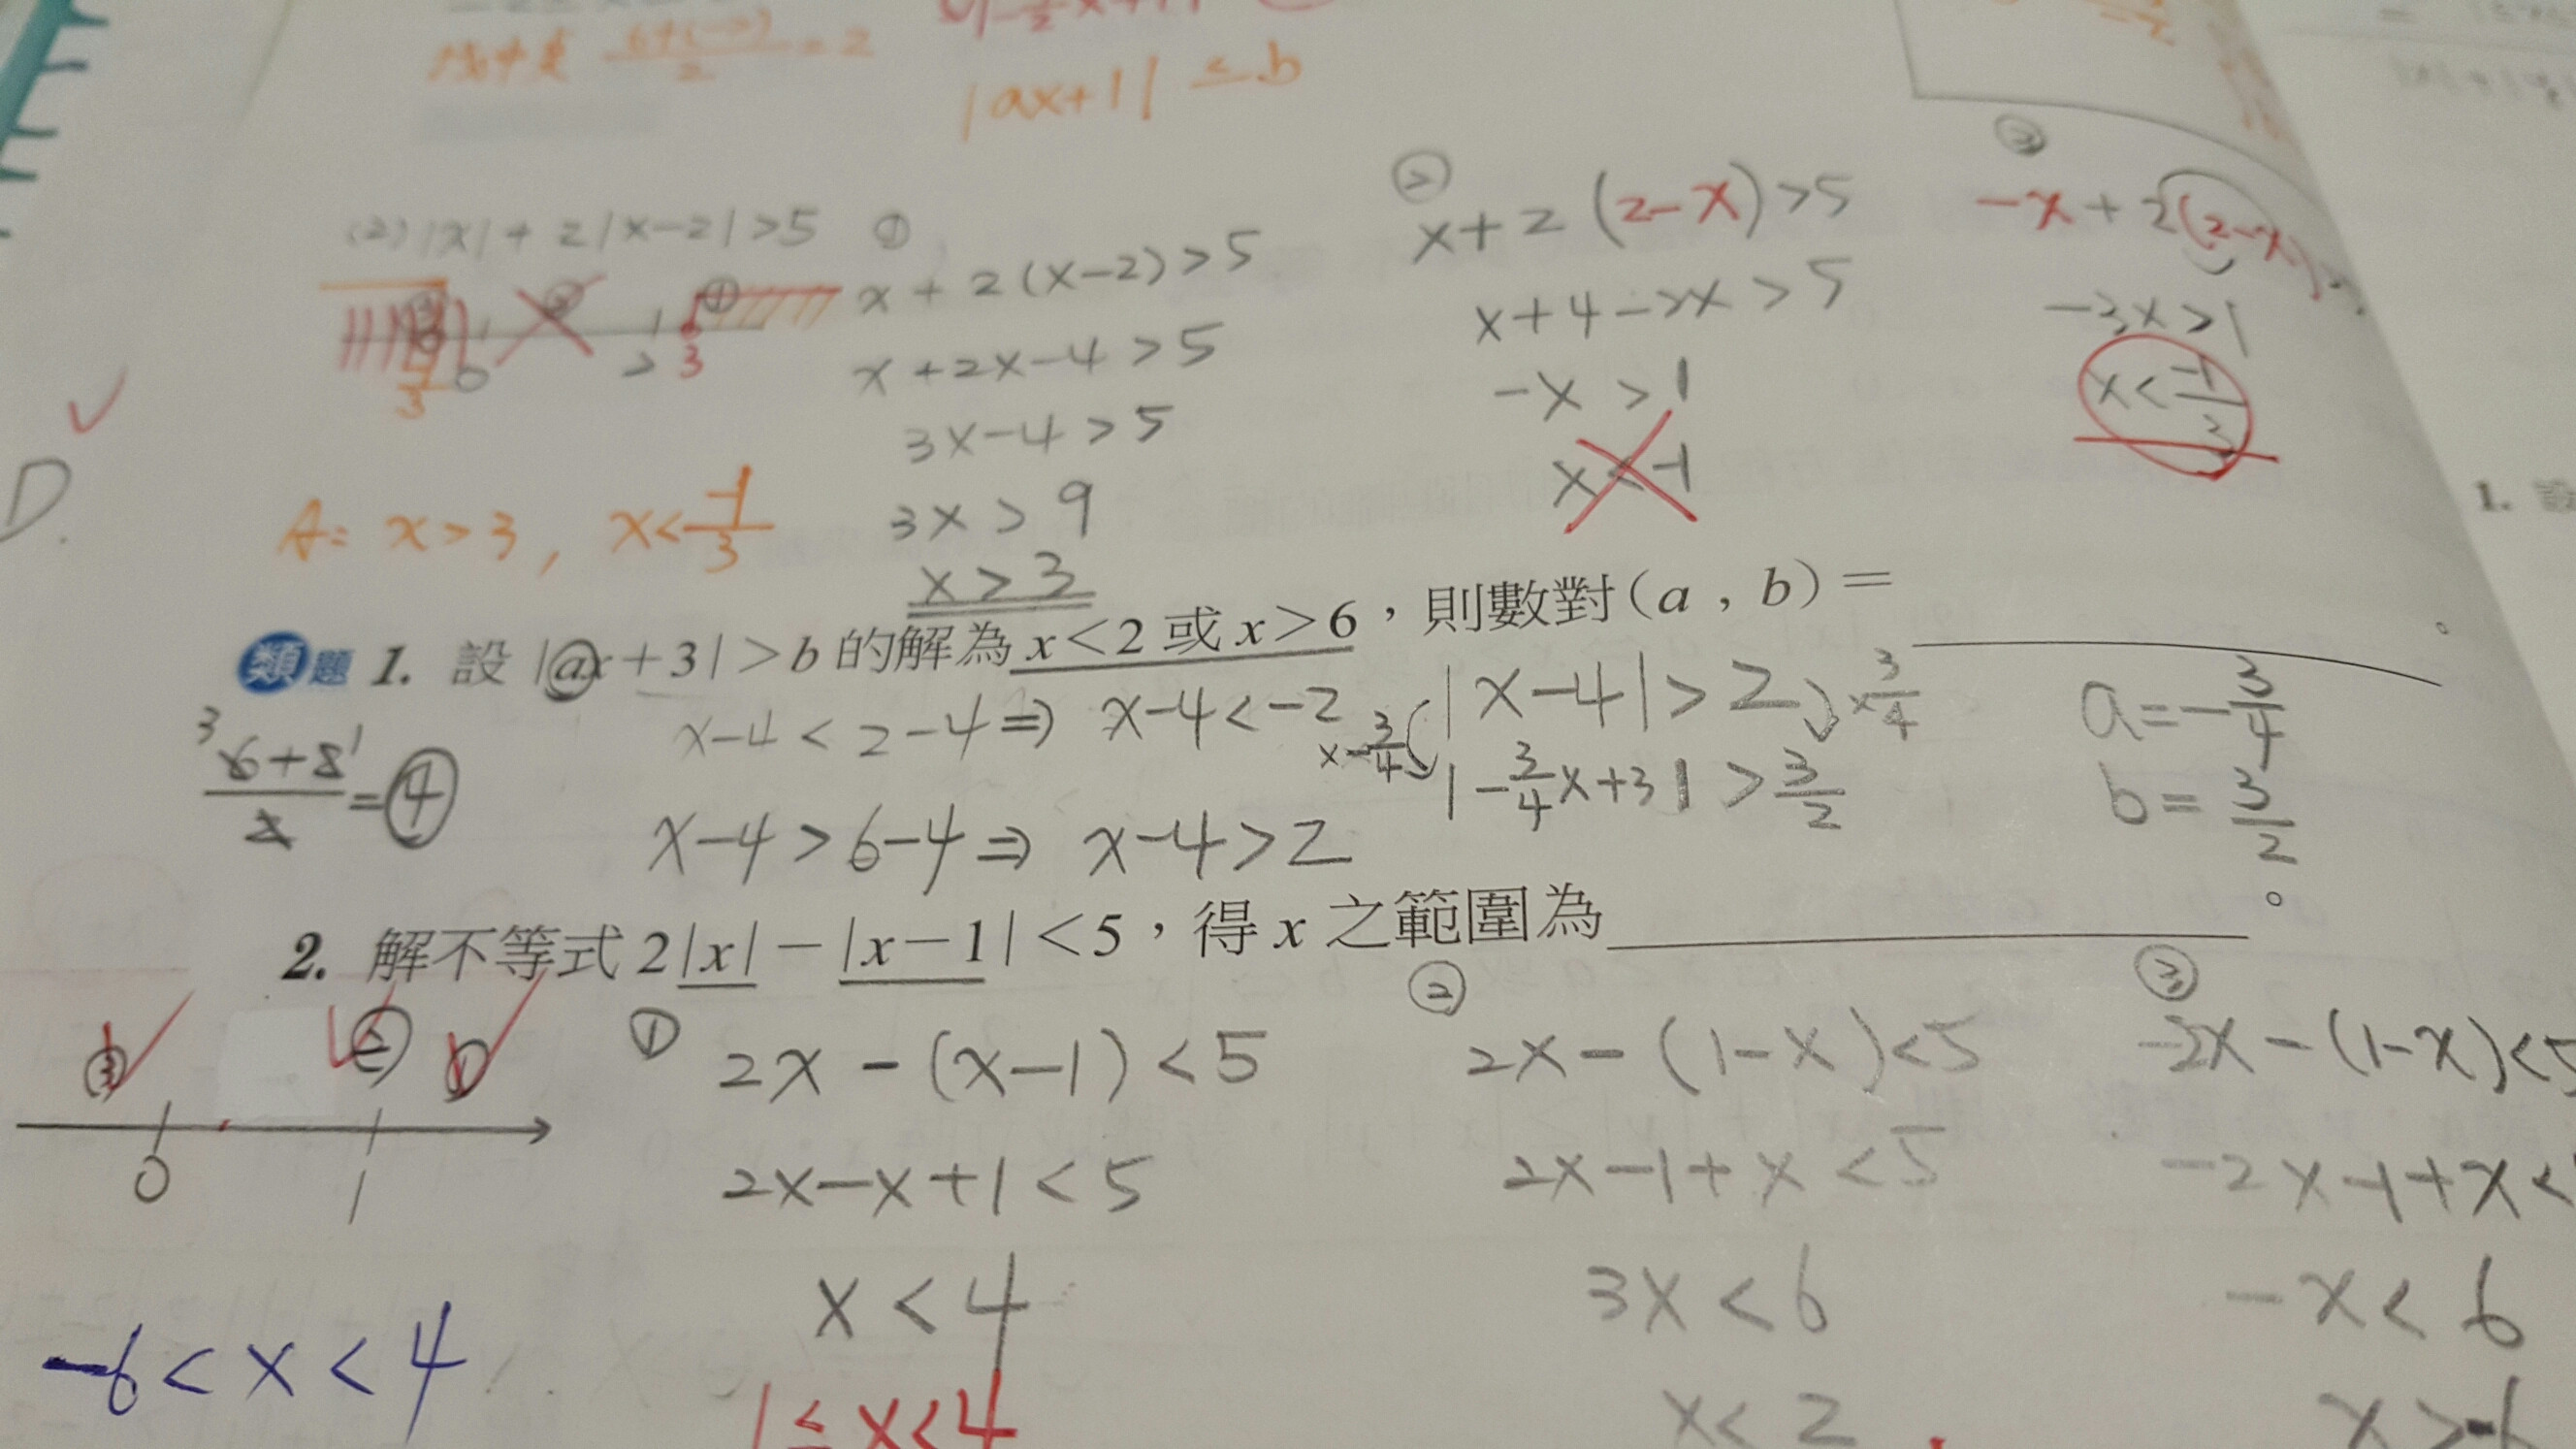 |ax+1| ≤ b
(2) |x| + 2|x-2| > 5
①
x + 2(x-2) > 5
x + 2x - 4 > 5
3x - 4 > 5
3x > 9
x > 3
②
x + 2(2-x) > 5
x + 4 - 2x > 5
-x > 1
x < -1
③
-x + 2(2-x)
-3x > 1
x < -1/3
③ ② ①
0 2 3
D.
A: x > 3 , x < -1/3
類題 1. 設 |ax+3| > b 的解為 x<2 或 x>6,則數對(a , b) = 。
6+8/2 = 4
3 1
x-4 < 2-4 ⇒ x-4 < -2
x-4 > 6-4 ⇒ x-4 > 2
|x-4| > 2
×-3/4 ×3/4
|-3/4x+3| > 3/2
a = -3/4
b = 3/2
2. 解不等式 2|x| - |x-1| < 5,得 x 之範圍為 。
③ ② ①
0 1
①
2x - (x-1) < 5
2x - x + 1 < 5
x < 4
1 ≤ x < 4
②
2x - (1-x) < 5
2x - 1 + x < 5
3x < 6
x < 2
③
-2x - (1-x) < 5
-2x - 1 + x <
-x < 6
x > -6
-6 < x < 4
1. 設